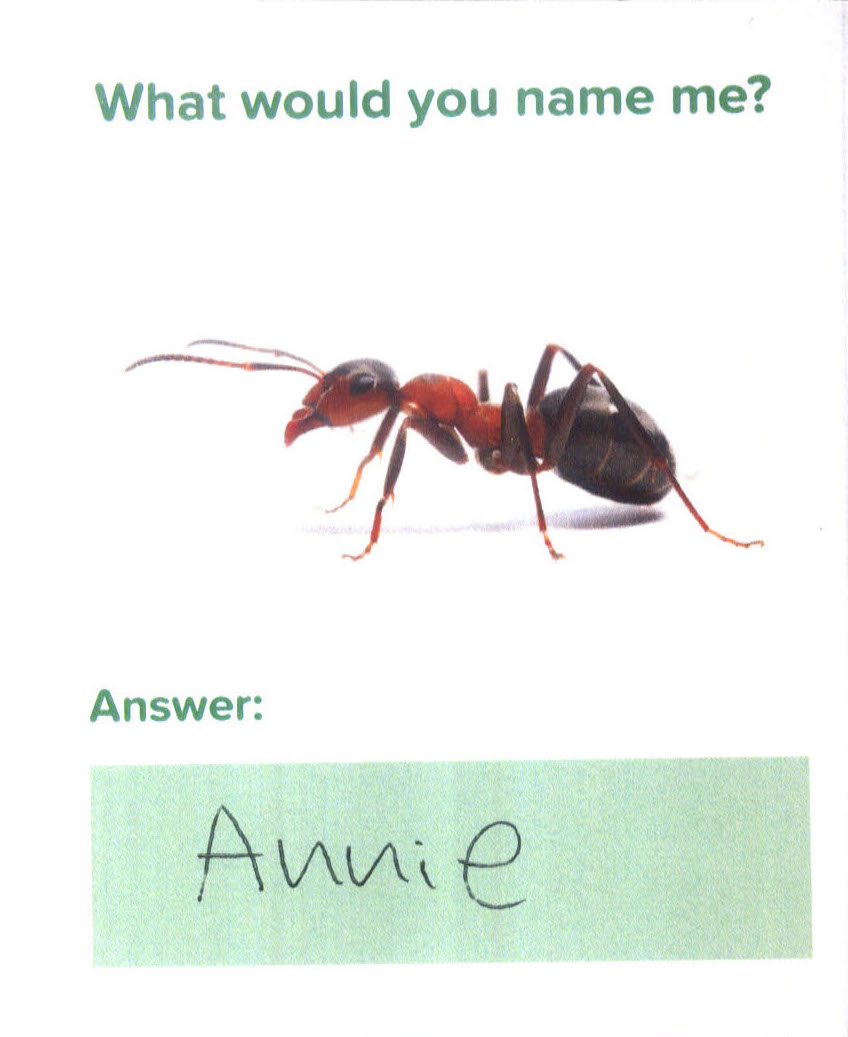 What would you name me?
Answer:
Annie